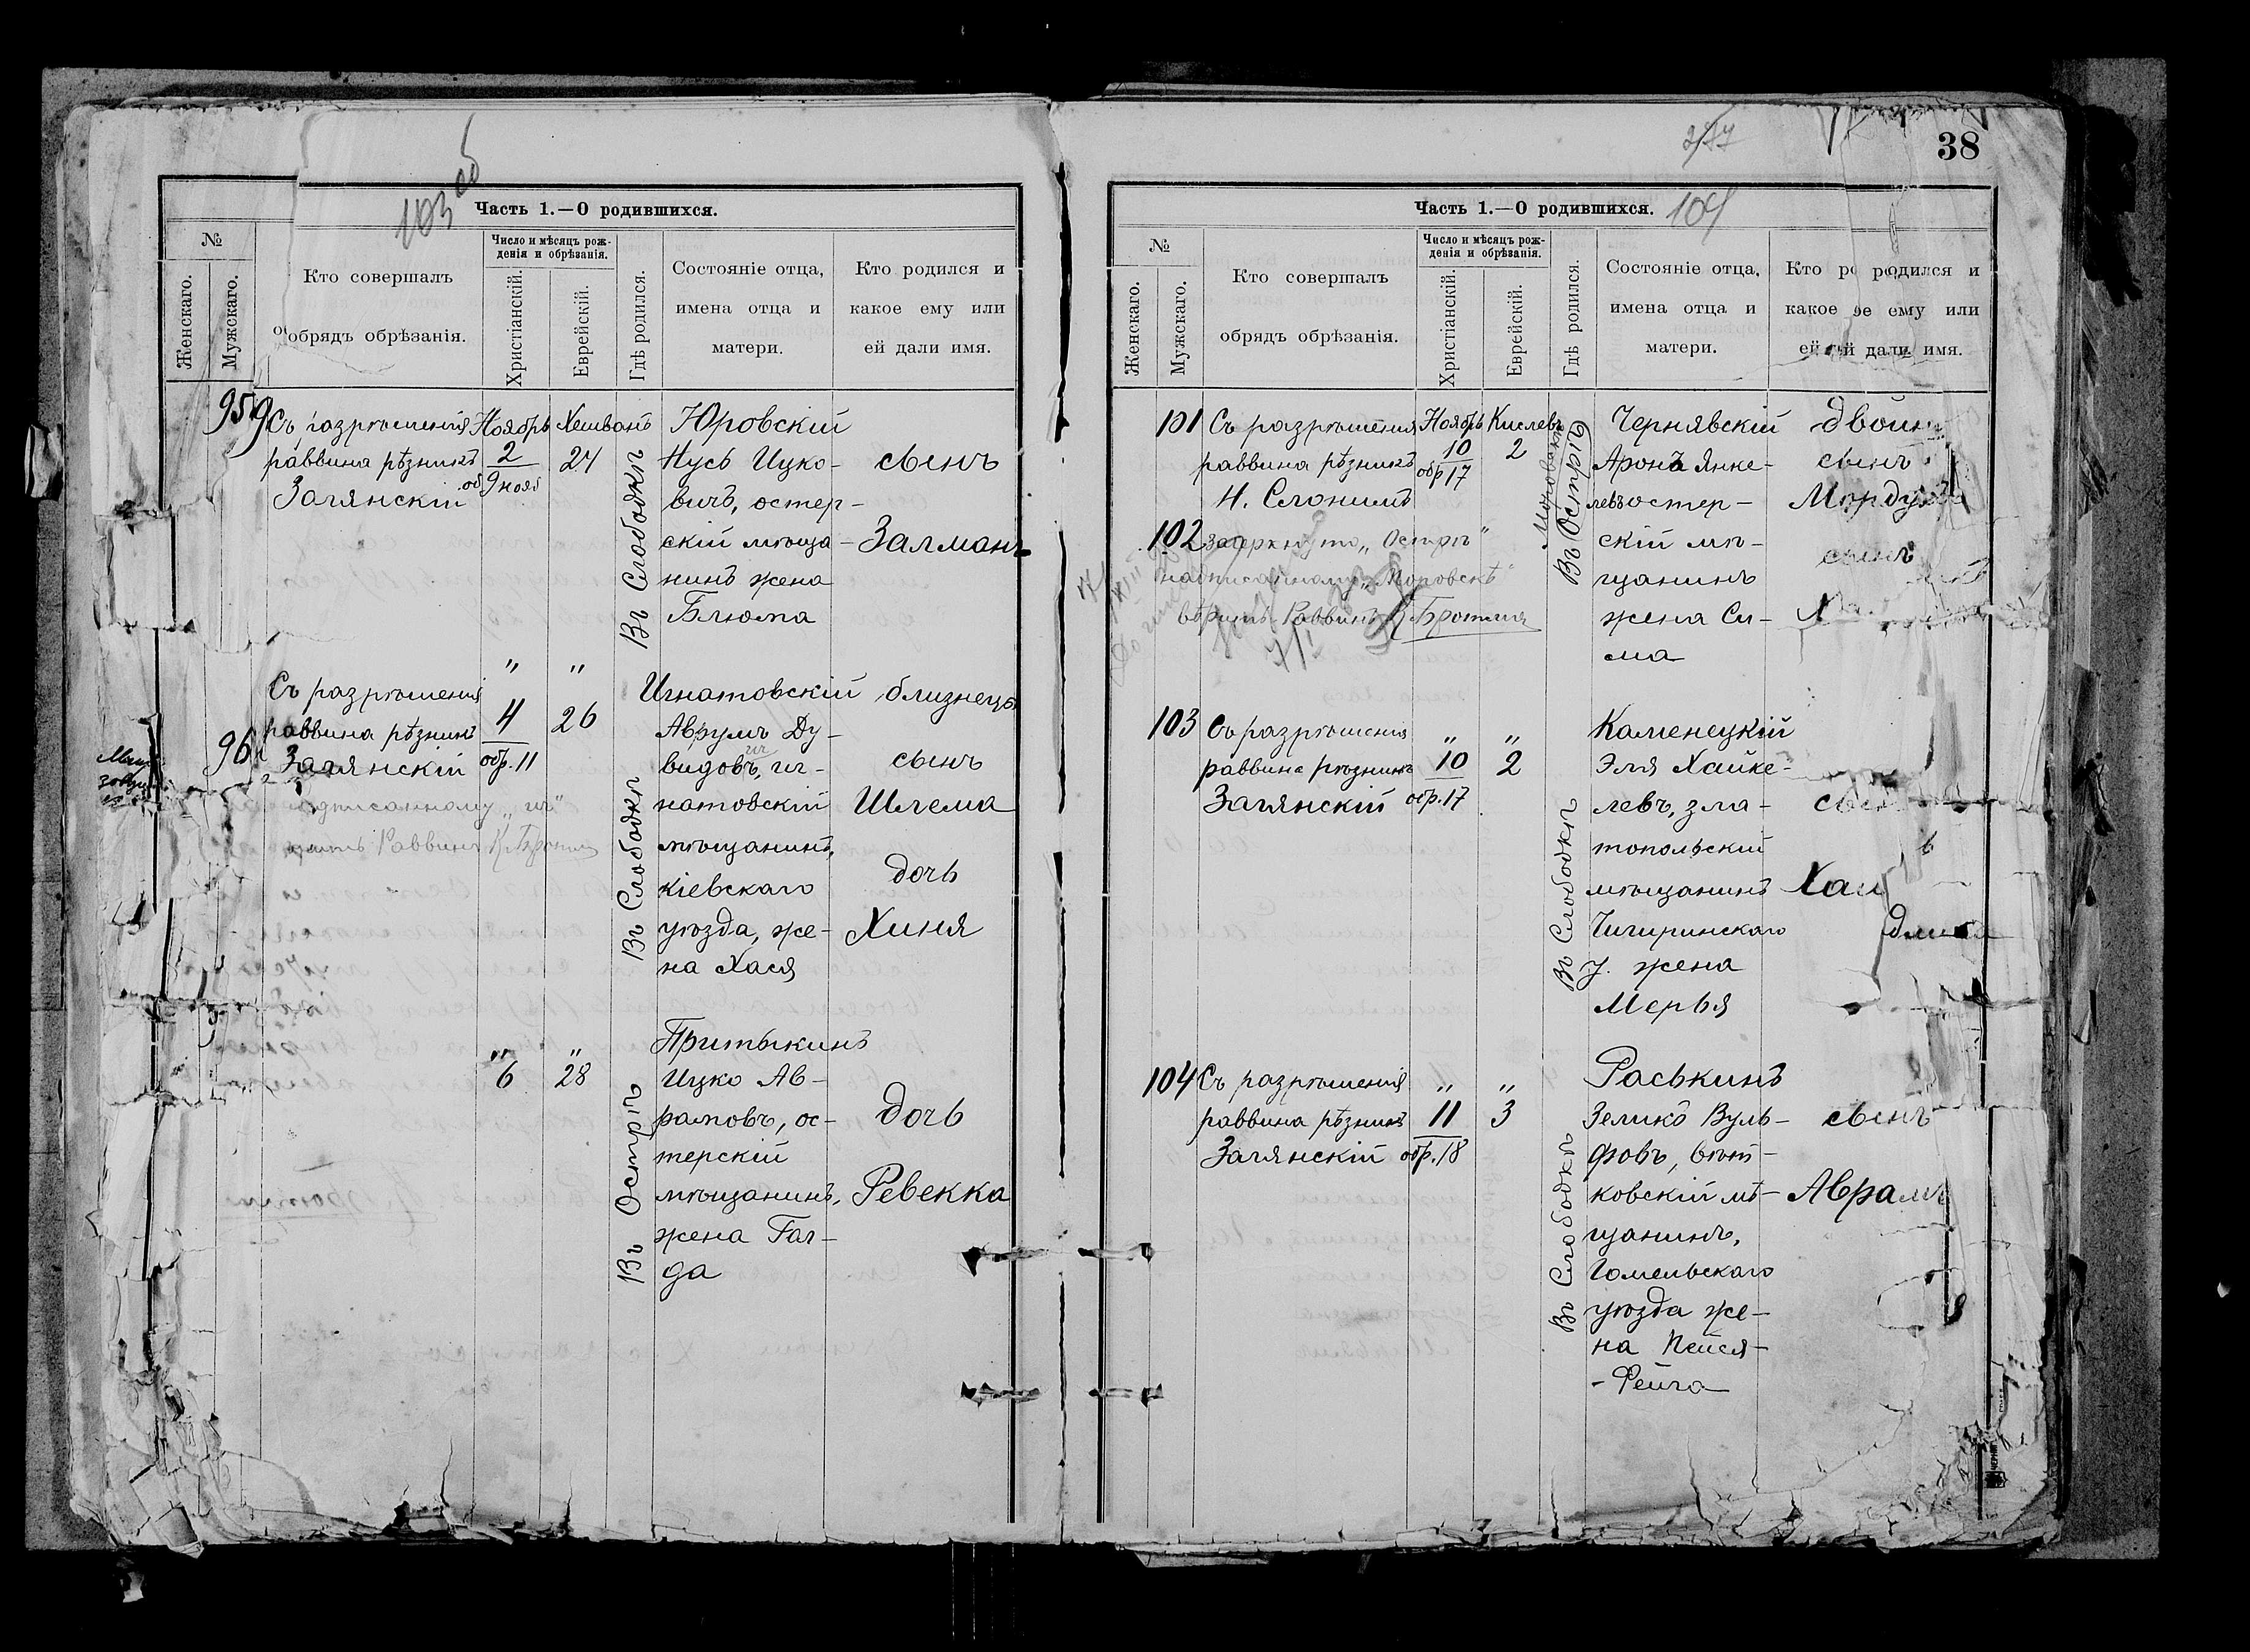 103 об
Часть 1.—О родившихся.
№
Женскаго.
Мужскаго.
Кто совершалъ
обрядъ обрѣзанія.
Число и мѣсяцъ рож-
денія и обрѣзанія.
Христіанскій.
Еврейскій.
Гдѣ родился.
Состояніе отца,
имена отца и
матери.
Кто родился и
какое ему или
ей дали имя.
Съ разрѣшенія
раввина рѣзникъ
Заглянскій
Ноябрь
2
об 9 нояб
Хешванъ
24
Въ Слободкѣ
Юровскій
Нусь Ицко-
вичъ, остер-
скій мѣща-
нинъ жена
Блюма
сынъ
Залманъ
Съ разрѣшенія
раввина рѣзникъ
Заглянскій
„
4
обр. 11
„
26
Въ Слободкѣ
Игнатовскій
Аврумъ Ду-
видовъ, иг-
натовскій
мѣщанинъ,
кіевскаго
уѣзда, же-
на Хася
близнецы
сынъ
Шлема
дочь
Хиня
„
6
„
28
Въ Острѣ
Притыкинъ
Ицко Ав-
рамовъ, ос-
терскій
мѣщанинъ,
жена Гал-
да
дочь
Ревекка
38
104
Часть 1.—О родившихся.
№
Женскаго.
Мужскаго.
Кто совершалъ
обрядъ обрѣзанія.
Число и мѣсяцъ рож-
денія и обрѣзанія.
Христіанскій.
Еврейскій.
Гдѣ родился.
Состояніе отца,
имена отца и
матери.
Кто родился и
какое ему или
ей дали имя.
101
Съ разрѣшенія
раввина рѣзникъ
Н. Слонимъ
Ноябрь
10
обр 17
Кислевъ
2
Моровскъ
Въ Острѣ
Чернявскій
Аронъ Янке-
левъ остер-
скій мѣ-
щанинъ
жена Си-
ма
сынъ
сынъ
102
зачеркнуто „Острѣ“
надписанному „Моровскъ“
вѣритъ Раввинъ
103
Съ разрѣшенія
раввина рѣзникъ
Заглянскій
„
10
обр. 17
„
2
Въ Слободкѣ
Каменецкій
Эля Хайке-
левъ, зла-
топольскій
мѣщанинъ
Чигиринскаго
у. жена
Мерья
104
Съ разрѣшенія
раввина рѣзникъ
Заглянскій
„
11
обр. 18
„
3
Въ Слободкѣ
Раськинъ
Зелико Вуль-
фовъ, вѣт-
ковскій мѣ-
щанинъ,
Гомельскаго
уѣзда же-
на Пейся-
-Фейга
сынъ
Аврамъ